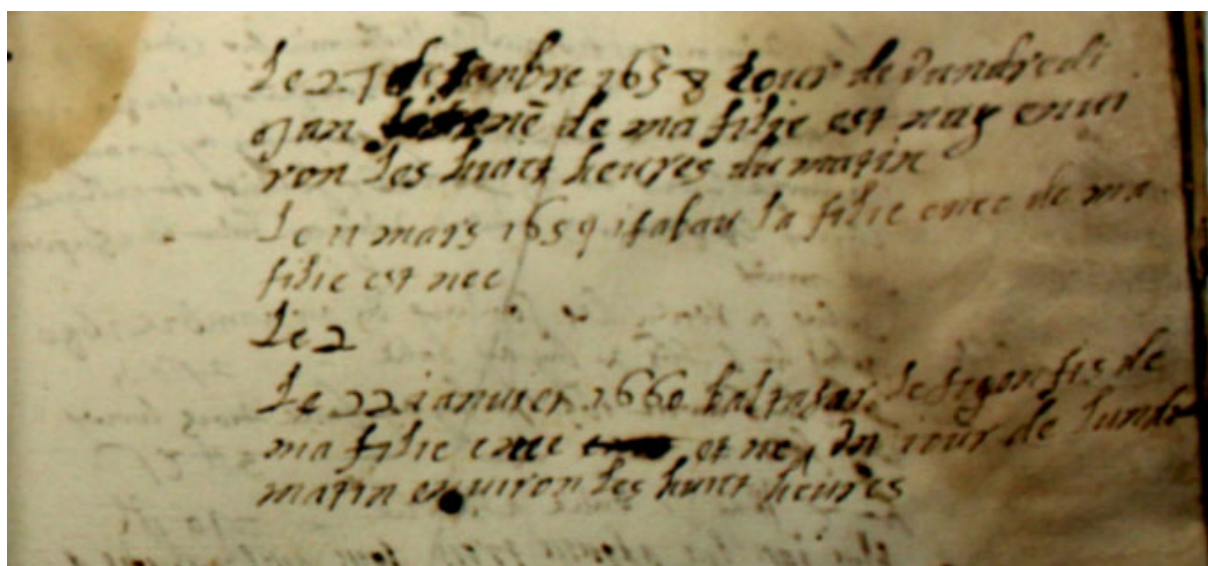 Le 27 desanbre 1658 Iour de vandredi
ojan de ma filie est nay enui
ron les huict heures du matin
Le 11 mars 1659 isabau la filie enee de ma
filie est nee
Le 2
Le 22 ianuier 1660 baltasar de sigon fis de
ma filie enee et ne, dn iour de lundi
matin enuiron les huict heures